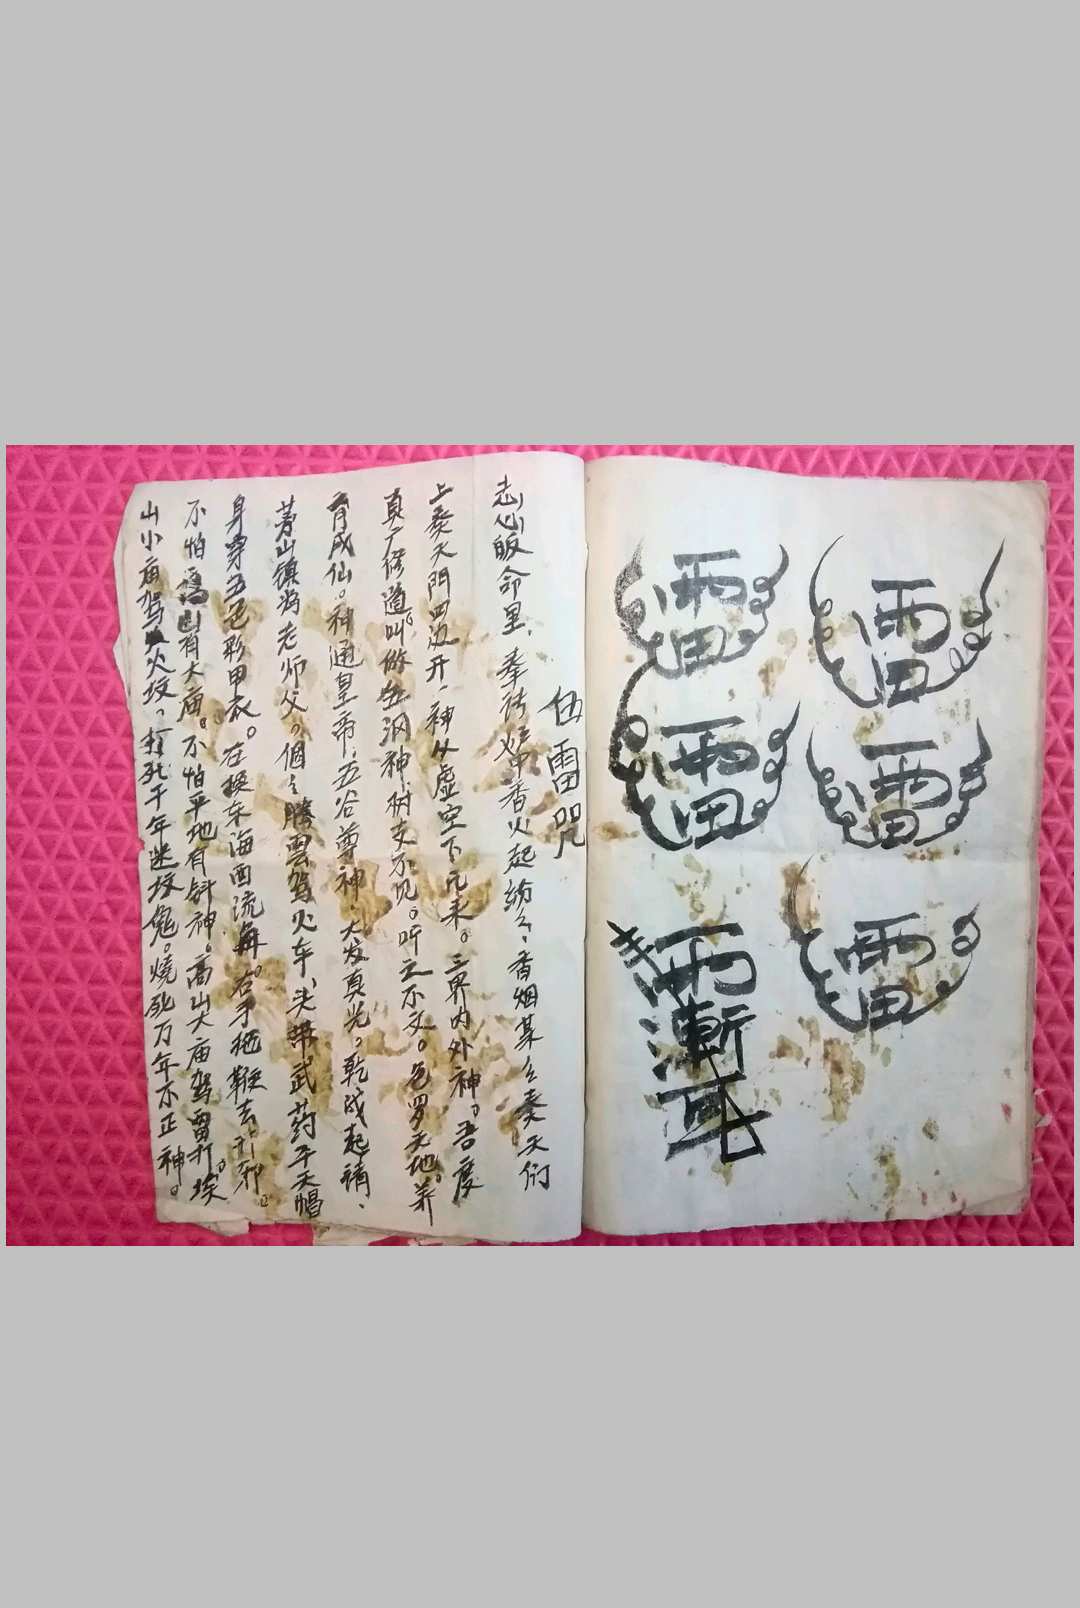 雷
雷
雷
雷
雷
伍雷咒
志心皈命里、奉请炉中香火起纷々、香烟某么奏天
上奏天門四边开、神从虚空下凡来。三界内外神。吾度
真广修道。叫做 神、树支不见。听之不文。包罗天地。养
育成仙。神通皇帝、五谷尊神、大发真光。乾 起請、
茅山鎮 老师父。個々騰雲驾火车、头带武 平天帽
身穿五色彩甲衣。在 东海西流 。右手 鞭去打邪。
不怕 山有大庙。不怕平地有斜神。高山大庙驾雷打。埃
山小庙驾火 坟、打死千年迷坟鬼。燒死万年不正神。